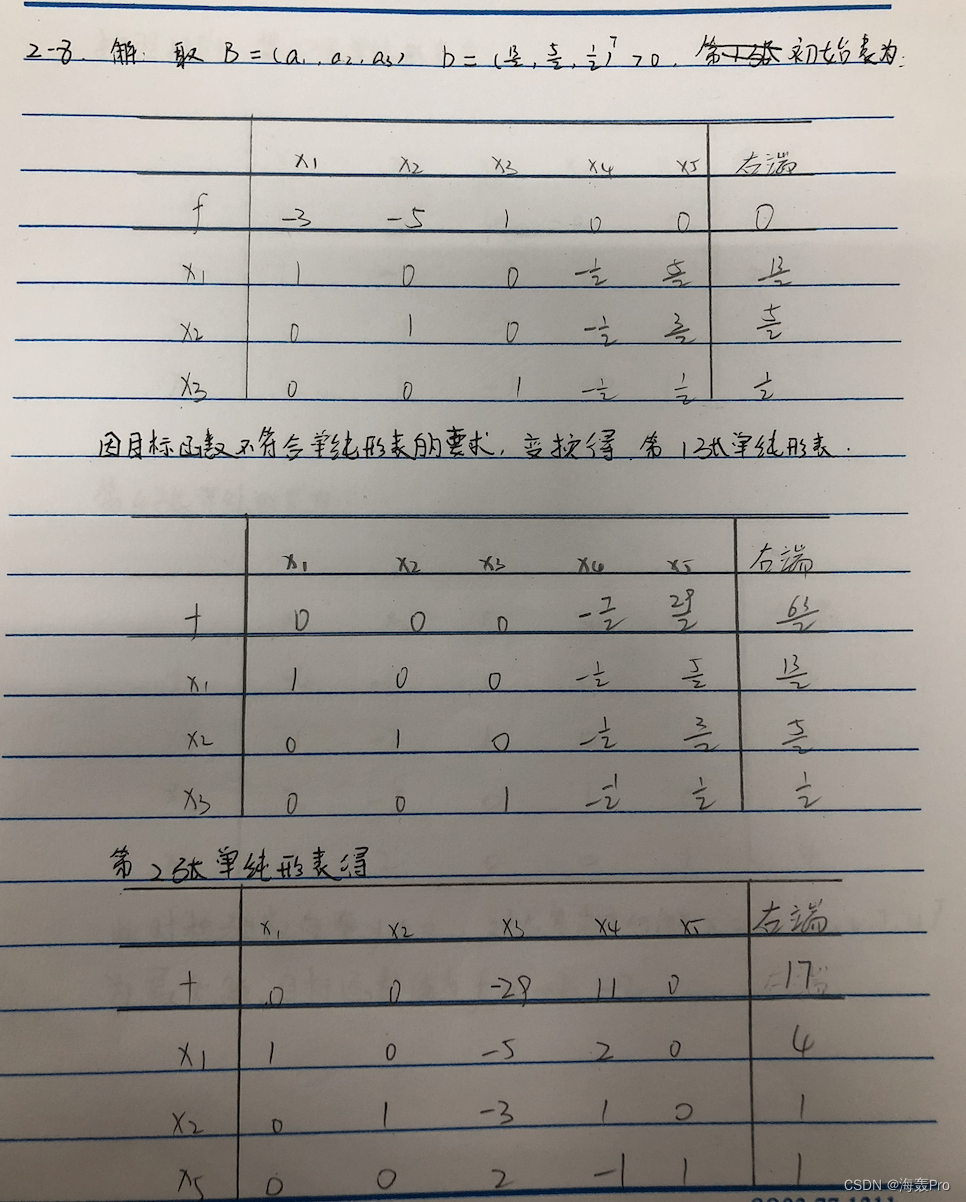 2-8. 解: 取 B=(a₁,a₂,a₃) b=(13/2, 5/2, 1/2)ᵀ>0. 初始表为:
x₁ x₂ x₃ x₄ x₅ 右端
f -3 -5 1 0 0 0
x₁ 1 0 0 -1/2 5/2 13/2
x₂ 0 1 0 -1/2 3/2 5/2
x₃ 0 0 1 -1/2 1/2 1/2
因目标函数不符合单纯形表的要求, 变换得 第1张单纯形表.
x₁ x₂ x₃ x₄ x₅ 右端
f 0 0 0 -7/2 29/2 63/2
x₁ 1 0 0 -1/2 5/2 13/2
x₂ 0 1 0 -1/2 3/2 5/2
x₃ 0 0 1 -1/2 1/2 1/2
第2张单纯形表得
x₁ x₂ x₃ x₄ x₅ 右端
f 0 0 -29 11 0 17
x₁ 1 0 -5 2 0 4
x₂ 0 1 -3 1 0 1
x₅ 0 0 2 -1 1 1
CSDN @海轰Pro